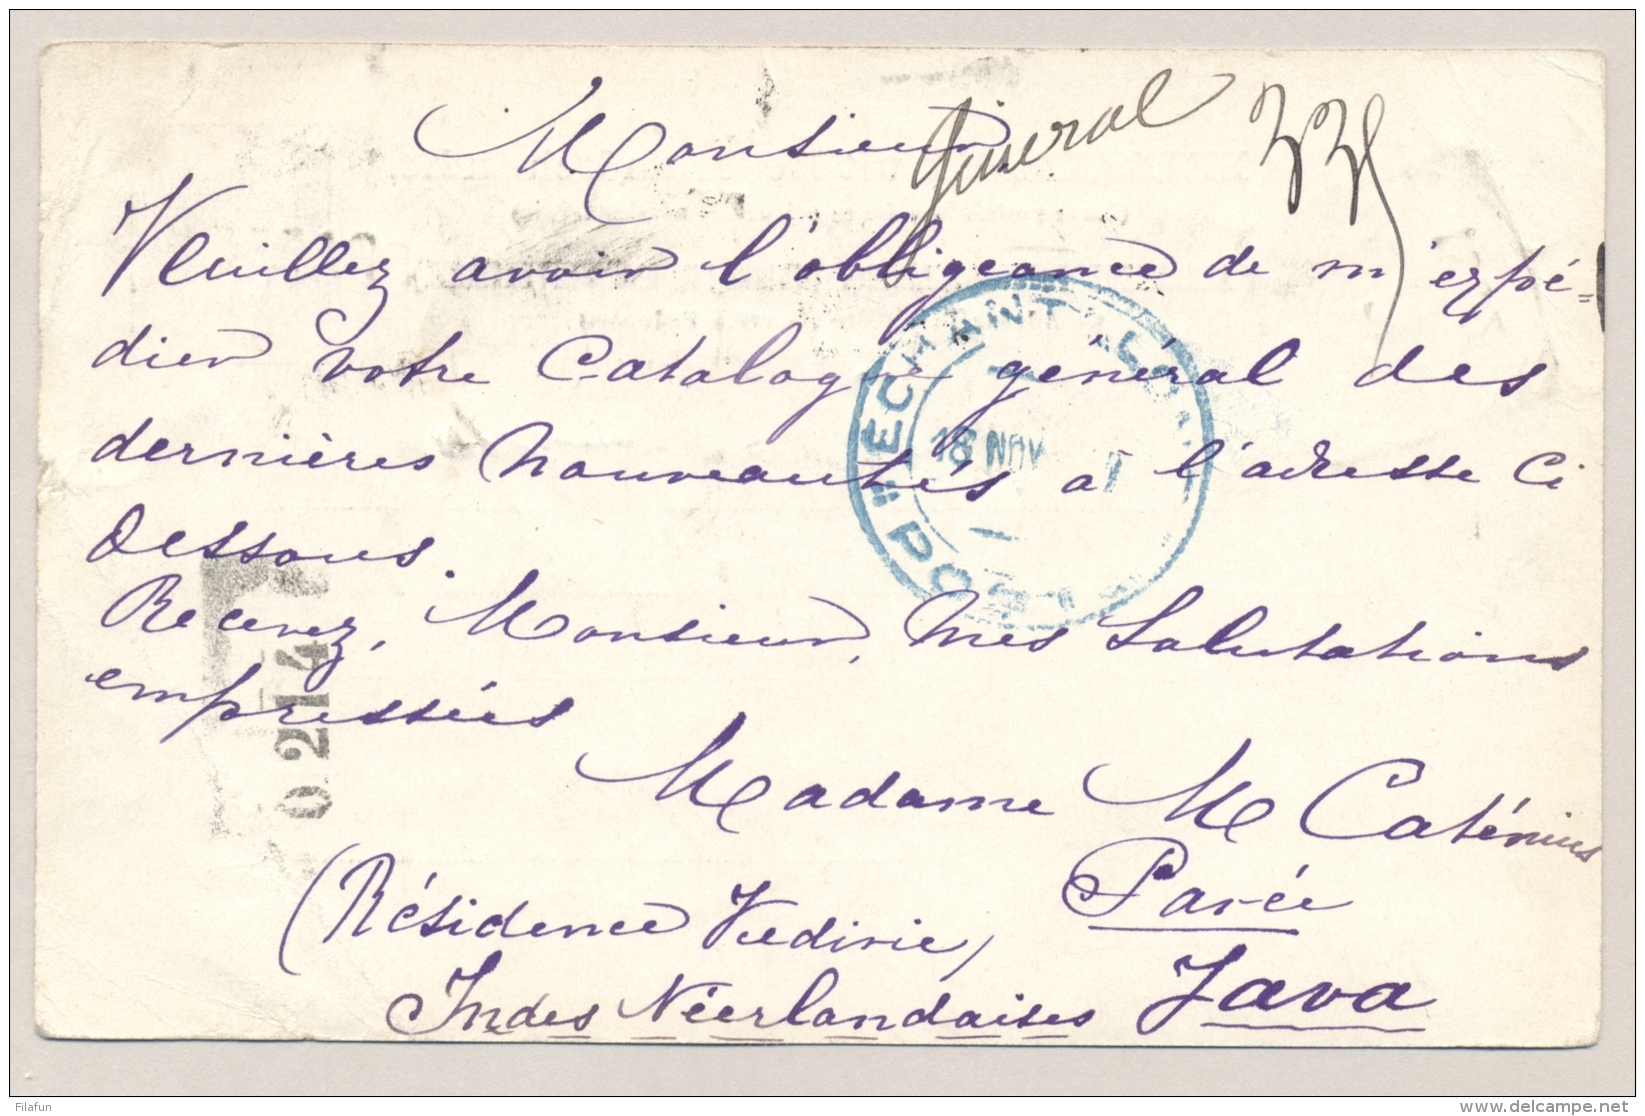 Monsieur,
General 335
Veuillez avoir l'obligeance de m'expé=
dier votre Catalogue général des
dernières Nouveautés a l'adresse Ci
Dessous.
Recevez, Monsieur, Mes Salutations
empressées
Madame M Caténius
Parée
(Résidence Kediri
Java
Indes Néerlandaises
ECHANT
18 NOV
0 214
Filafun
delcampe.net